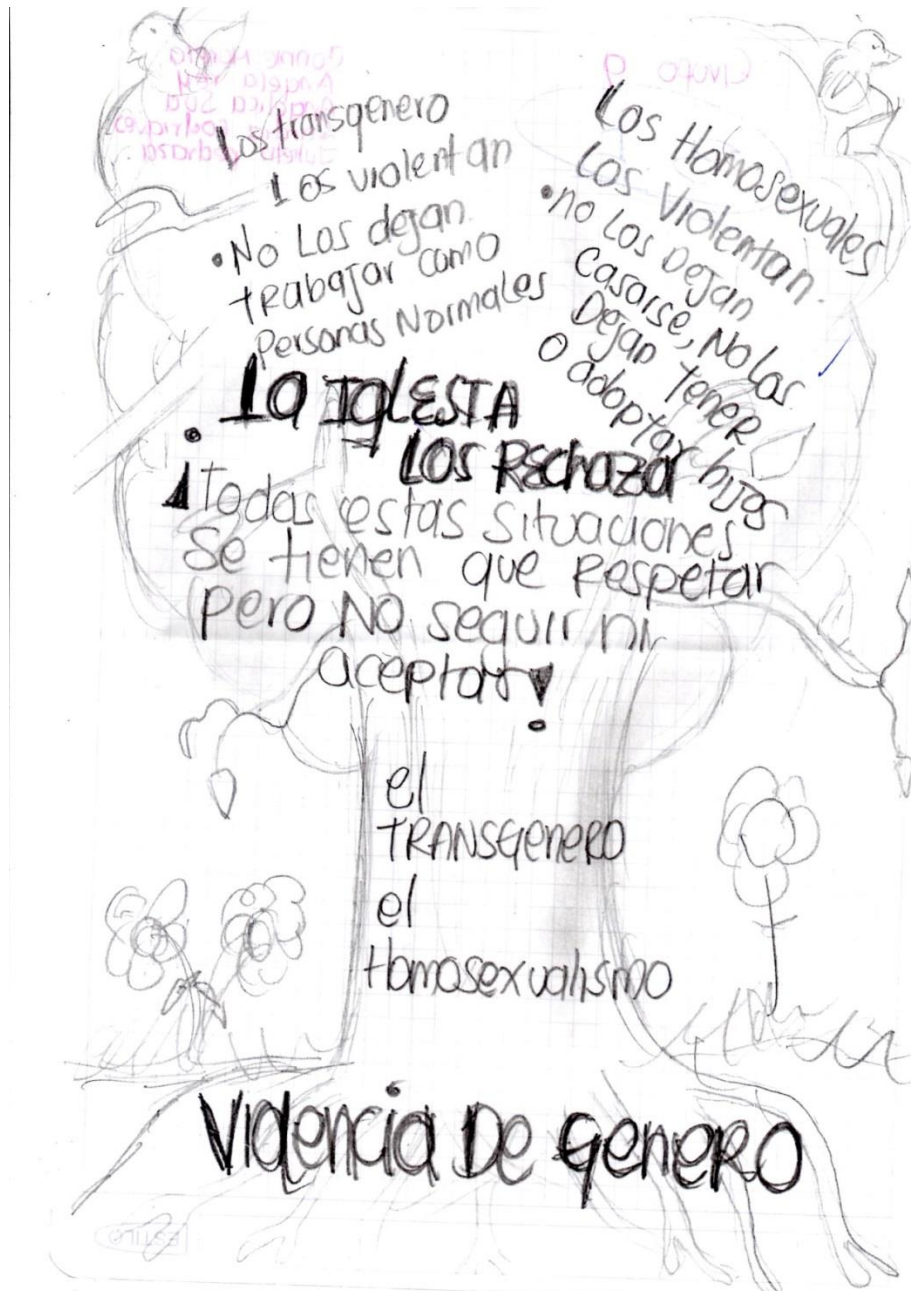 Los transgenero
Los violentan
•No Los dejan
tRabajar como
Personas Normales
Los Homosexuales
Los Violentan.
•no Los Dejan
Casarse, No Los
Dejan TeneR
O adoptar hijos
•La IGLESIA
Los Rechazar
¡Todas estas situaciones
Se tienen que Respetar
pero NO seguir ni
aceptar!
el
TRANSGeneRO
el
Homosexualismo
Violencia De GeneRO
Grupo 9
ESTILO